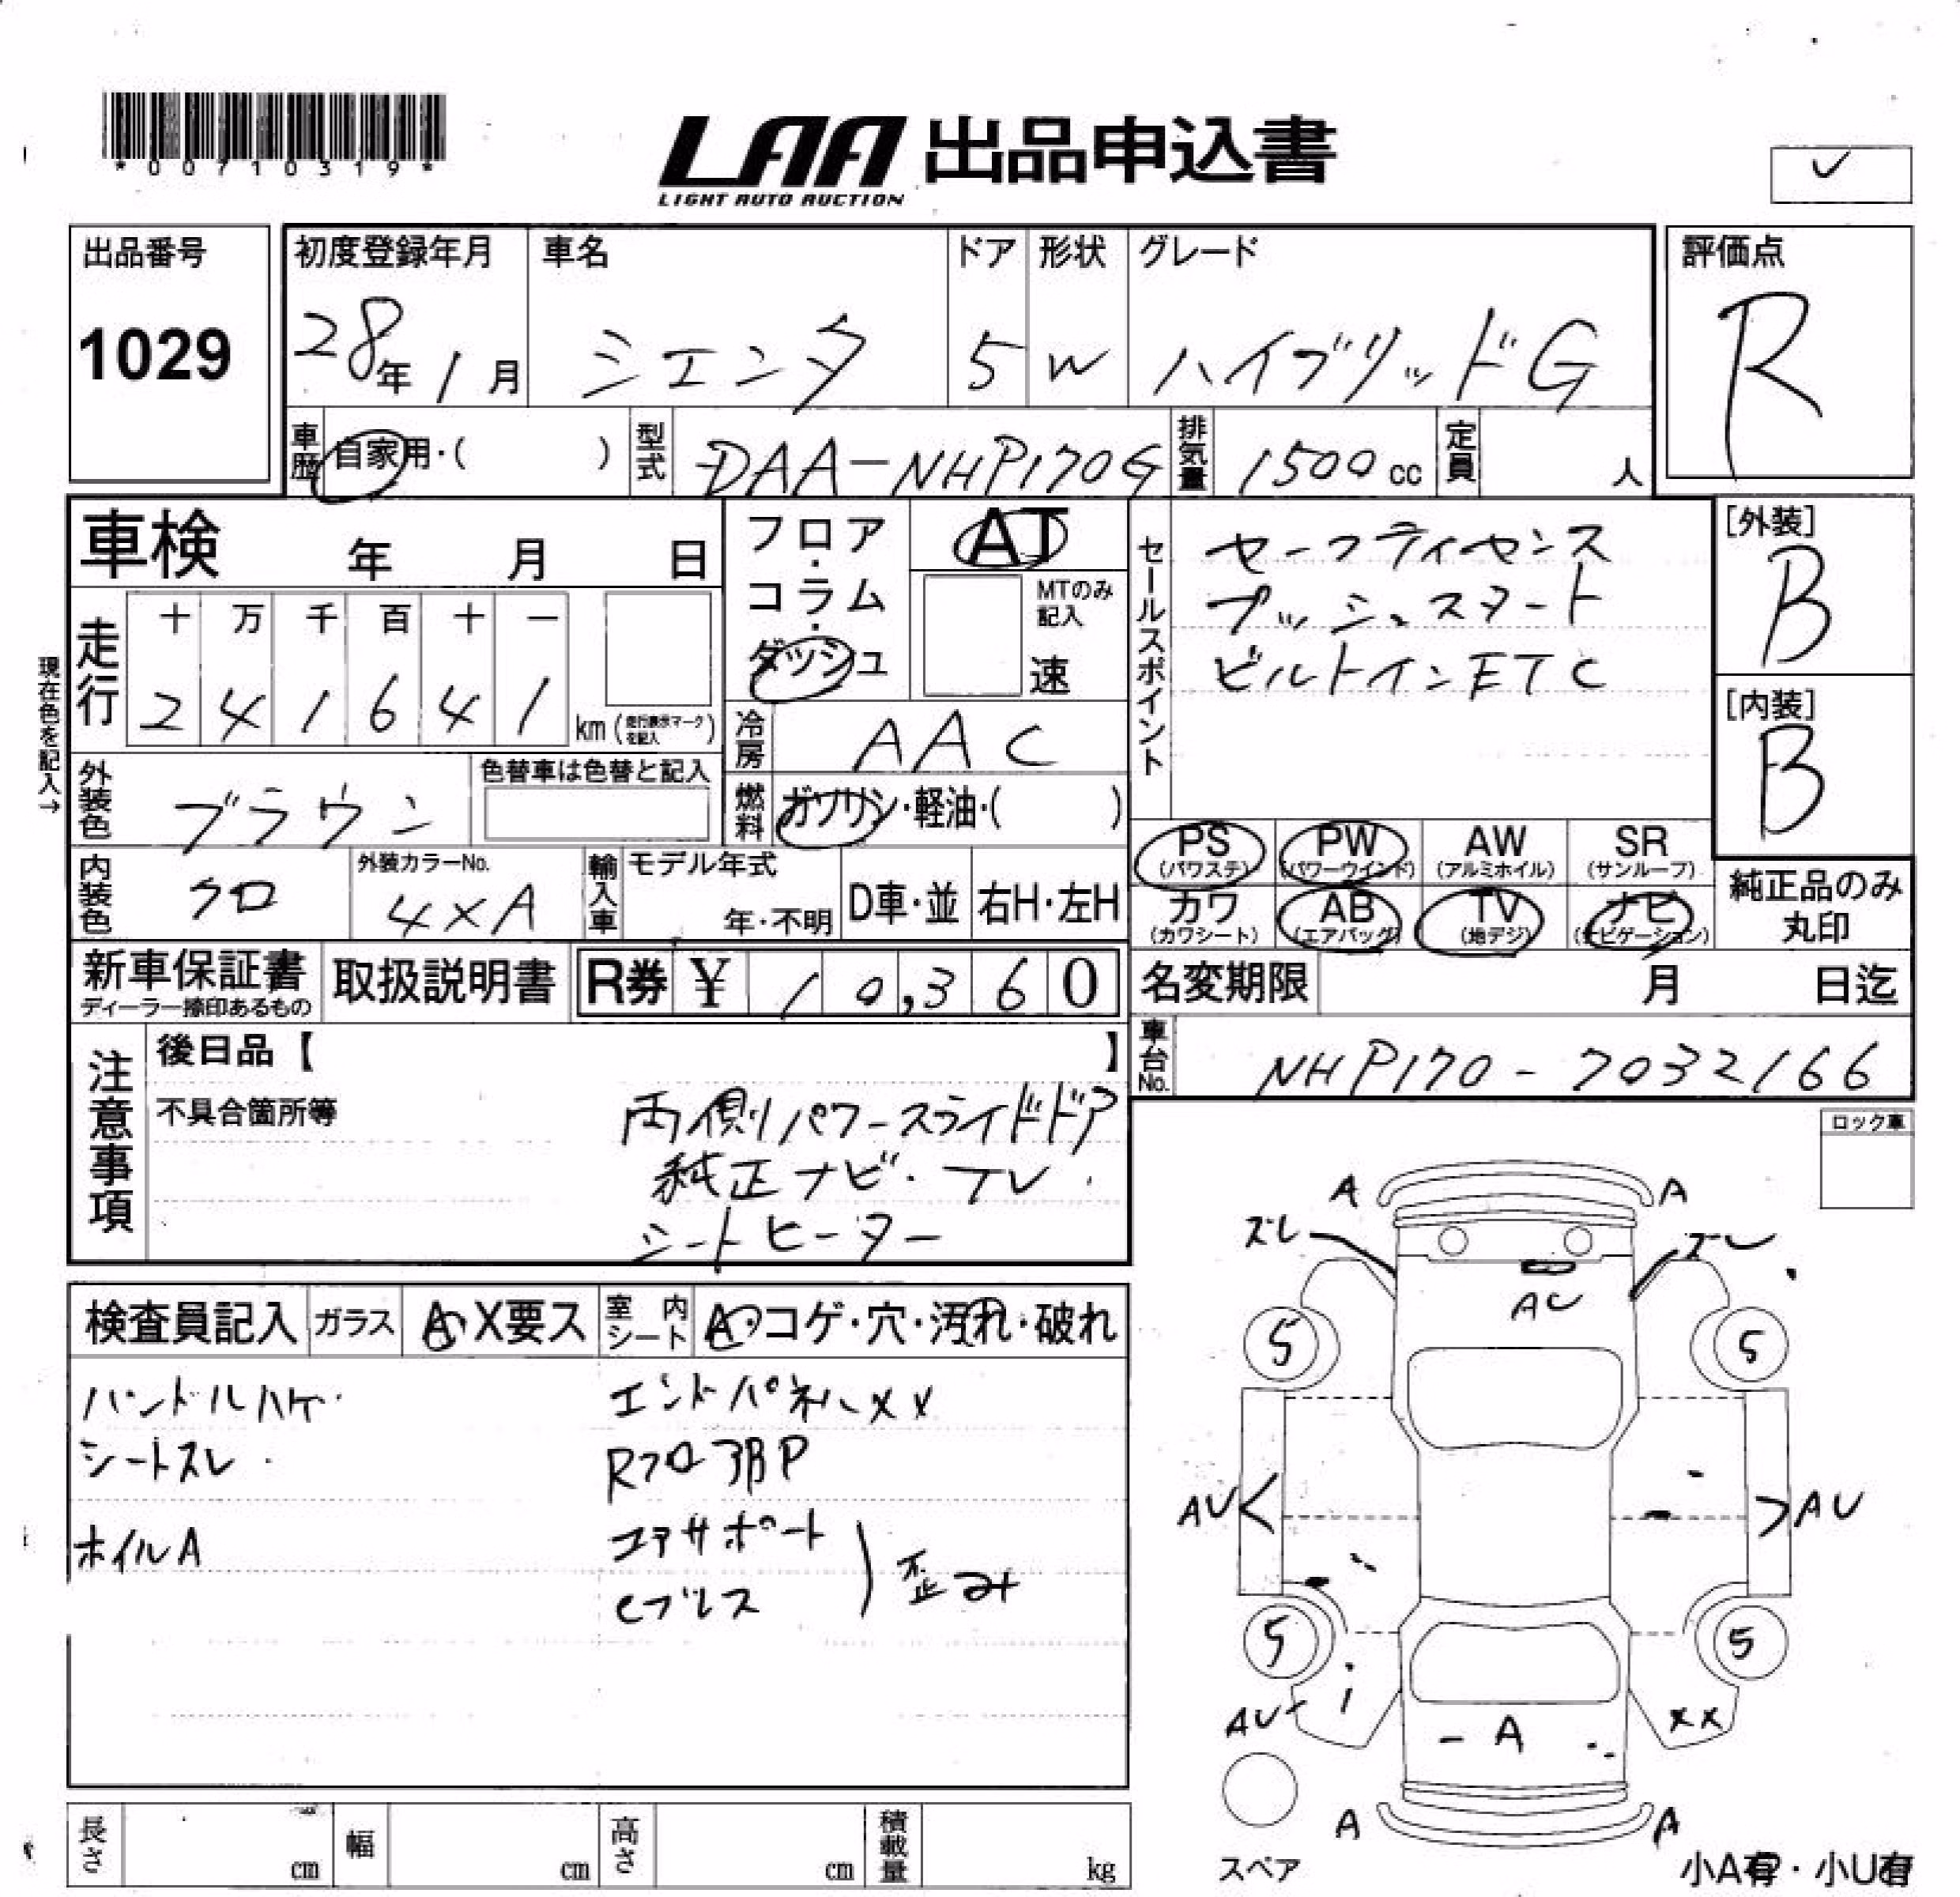 *00710319*
LAA 出品申込書
LIGHT AUTO AUCTION
出品番号
1029
初度登録年月
28年1月
車名
シエンタ
ドア
5
形状
W
グレード
ハイブリッドG
評価点
R
車歴
自家用・( )
型式
DAA-NHP170G
排気量
1500cc
定員
人
車検 年 月 日
フロア・コラム・ダッシュ
AT
MTのみ記入
速
セールスポイント
セーフティセンス
プッシュスタート
ビルトインETC
[外装]
B
[内装]
B
現在色を記入→
走行
十 万 千 百 十 一
2 4 1 6 4 1
km(走行表示マークを記入)
冷房
AAC
外装色
ブラウン
色替車は色替と記入
燃料
ガソリン・軽油・( )
内装色
クロ
外装カラーNo.
4XA
輸入車
モデル年式
年・不明
D車・並
右H・左H
PS (パワステ)
PW (パワーウインド)
AW (アルミホイル)
SR (サンルーフ)
カワ (カワシート)
AB (エアバッグ)
TV (地デジ)
ナビ (ナビゲーション)
純正品のみ丸印
新車保証書
ディーラー捺印あるもの
取扱説明書
R券 ¥ 10,360
名変期限 月 日迄
車台No.
NHP170-7032166
注意事項
後日品【 】
不具合箇所等
両側パワースライドドア
純正ナビ・TV
シートヒーター
ロック車
検査員記入
ガラス
A・X要ス
室内シート
A・コゲ・穴・汚れ・破れ
ハンドルハゲ
シートスレ
ホイルA
エンドパネルXX
RフロアBP
コアサポート
Cブレス
歪み
A A
ズレ ズレ
AU
5 5
AU AU
5 5
AU XX
A
A A
スペア
小A有・小U有
長さ cm
幅 cm
高さ cm
積載量 kg